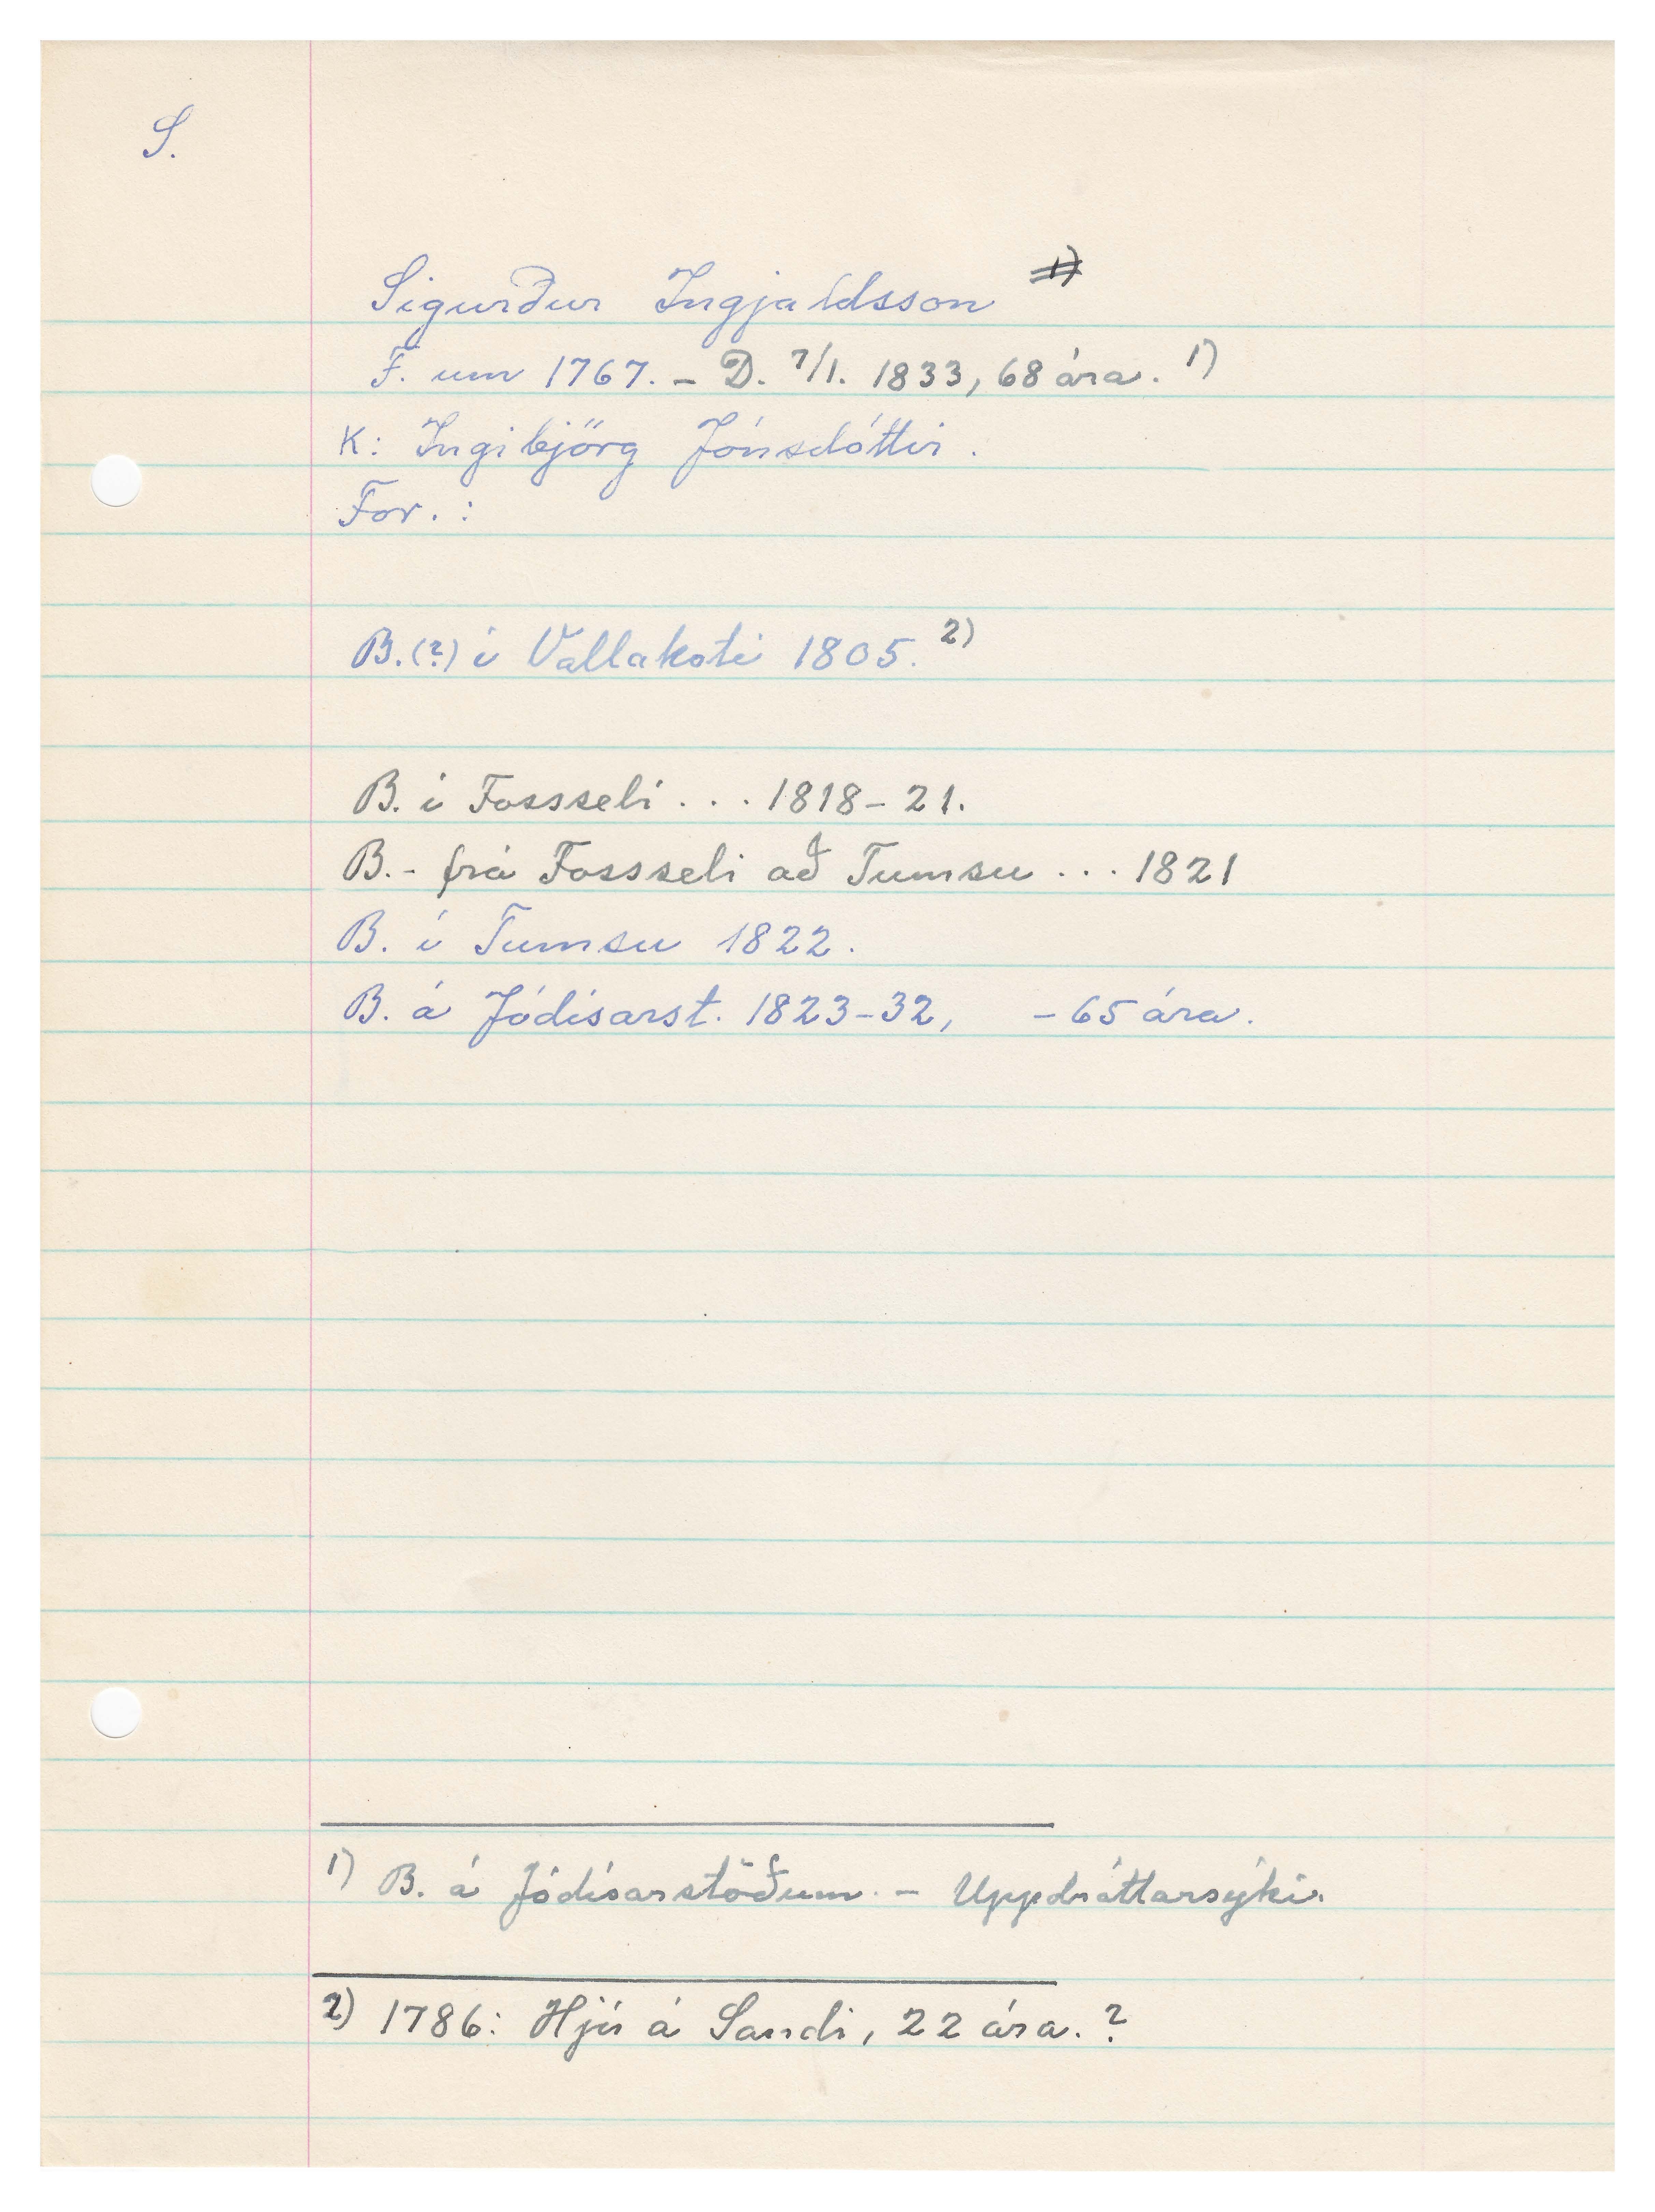 S.
Sigurður Ingjaldsson
F. um 1767. - D. 7/1. 1833, 68 ára. 1)
K: Ingibjörg Jónsdóttir.
For. :
B.(?) í Vallakoti 1805. 2)
B. í Fossseli . . . 1818-21.
B. - frá Fossseli að Tumsu . . . 1821
B. í Tumsu 1822.
B. á Jódísarst. 1823-32, - 65 ára.
1) B. á Jódísarstöðum. - Uppdráttarsýki.
2) 1786: Hjú á Sandi, 22 ára. ?